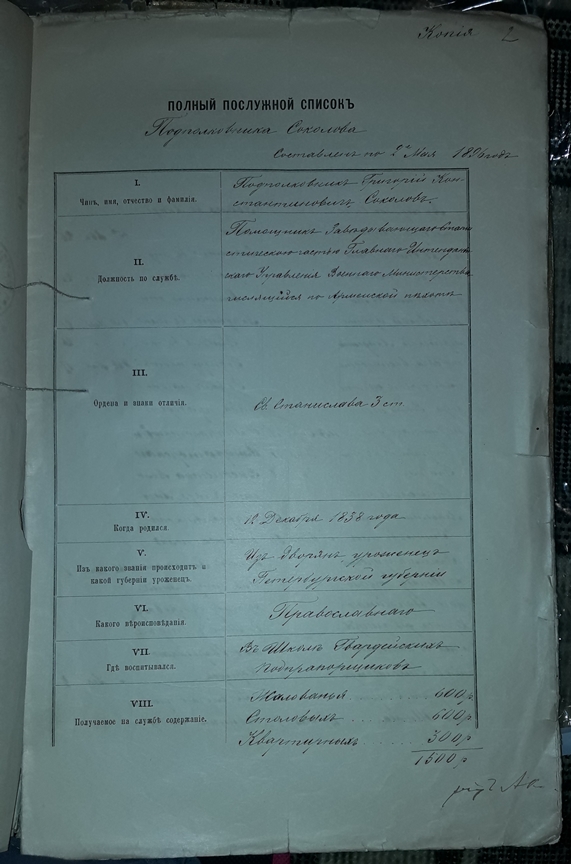 Копія 2
ПОЛНЫЙ ПОСЛУЖНОЙ СПИСОКЪ
Подполковника Соколова
Составленъ по 2е Мая 189 годъ
I.
Чинъ, имя, отчество и фамилія.
Подполковникъ Григорій Кон-
стантиновичъ Соколовъ.
II.
Должность по службѣ.
Помощникъ Заведовающаго
частью Главнаго Интендант-
скаго Управленія Военнаго Министерства
числящійся по Армейской пѣхотѣ
III.
Ордена и знаки отличія.
Св. Станислава 3 ст.
IV.
Когда родился.
12 Декабря 1838 года
V.
Изъ какого званія происходитъ и
какой губерніи уроженец.
Изъ дворянъ уроженецъ
Петербургской губерніи
VI.
Какого вѣроисповѣданія.
Православнаго
VII.
Гдѣ воспитывался.
Въ Школѣ Гвардейскихъ
подпрапорщиковъ
VIII.
Получаемое на службѣ содержаніе.
Жалованья .... 600 р
Столовыхъ .... 600 р
Квартирныхъ .... 300 р
1500 р